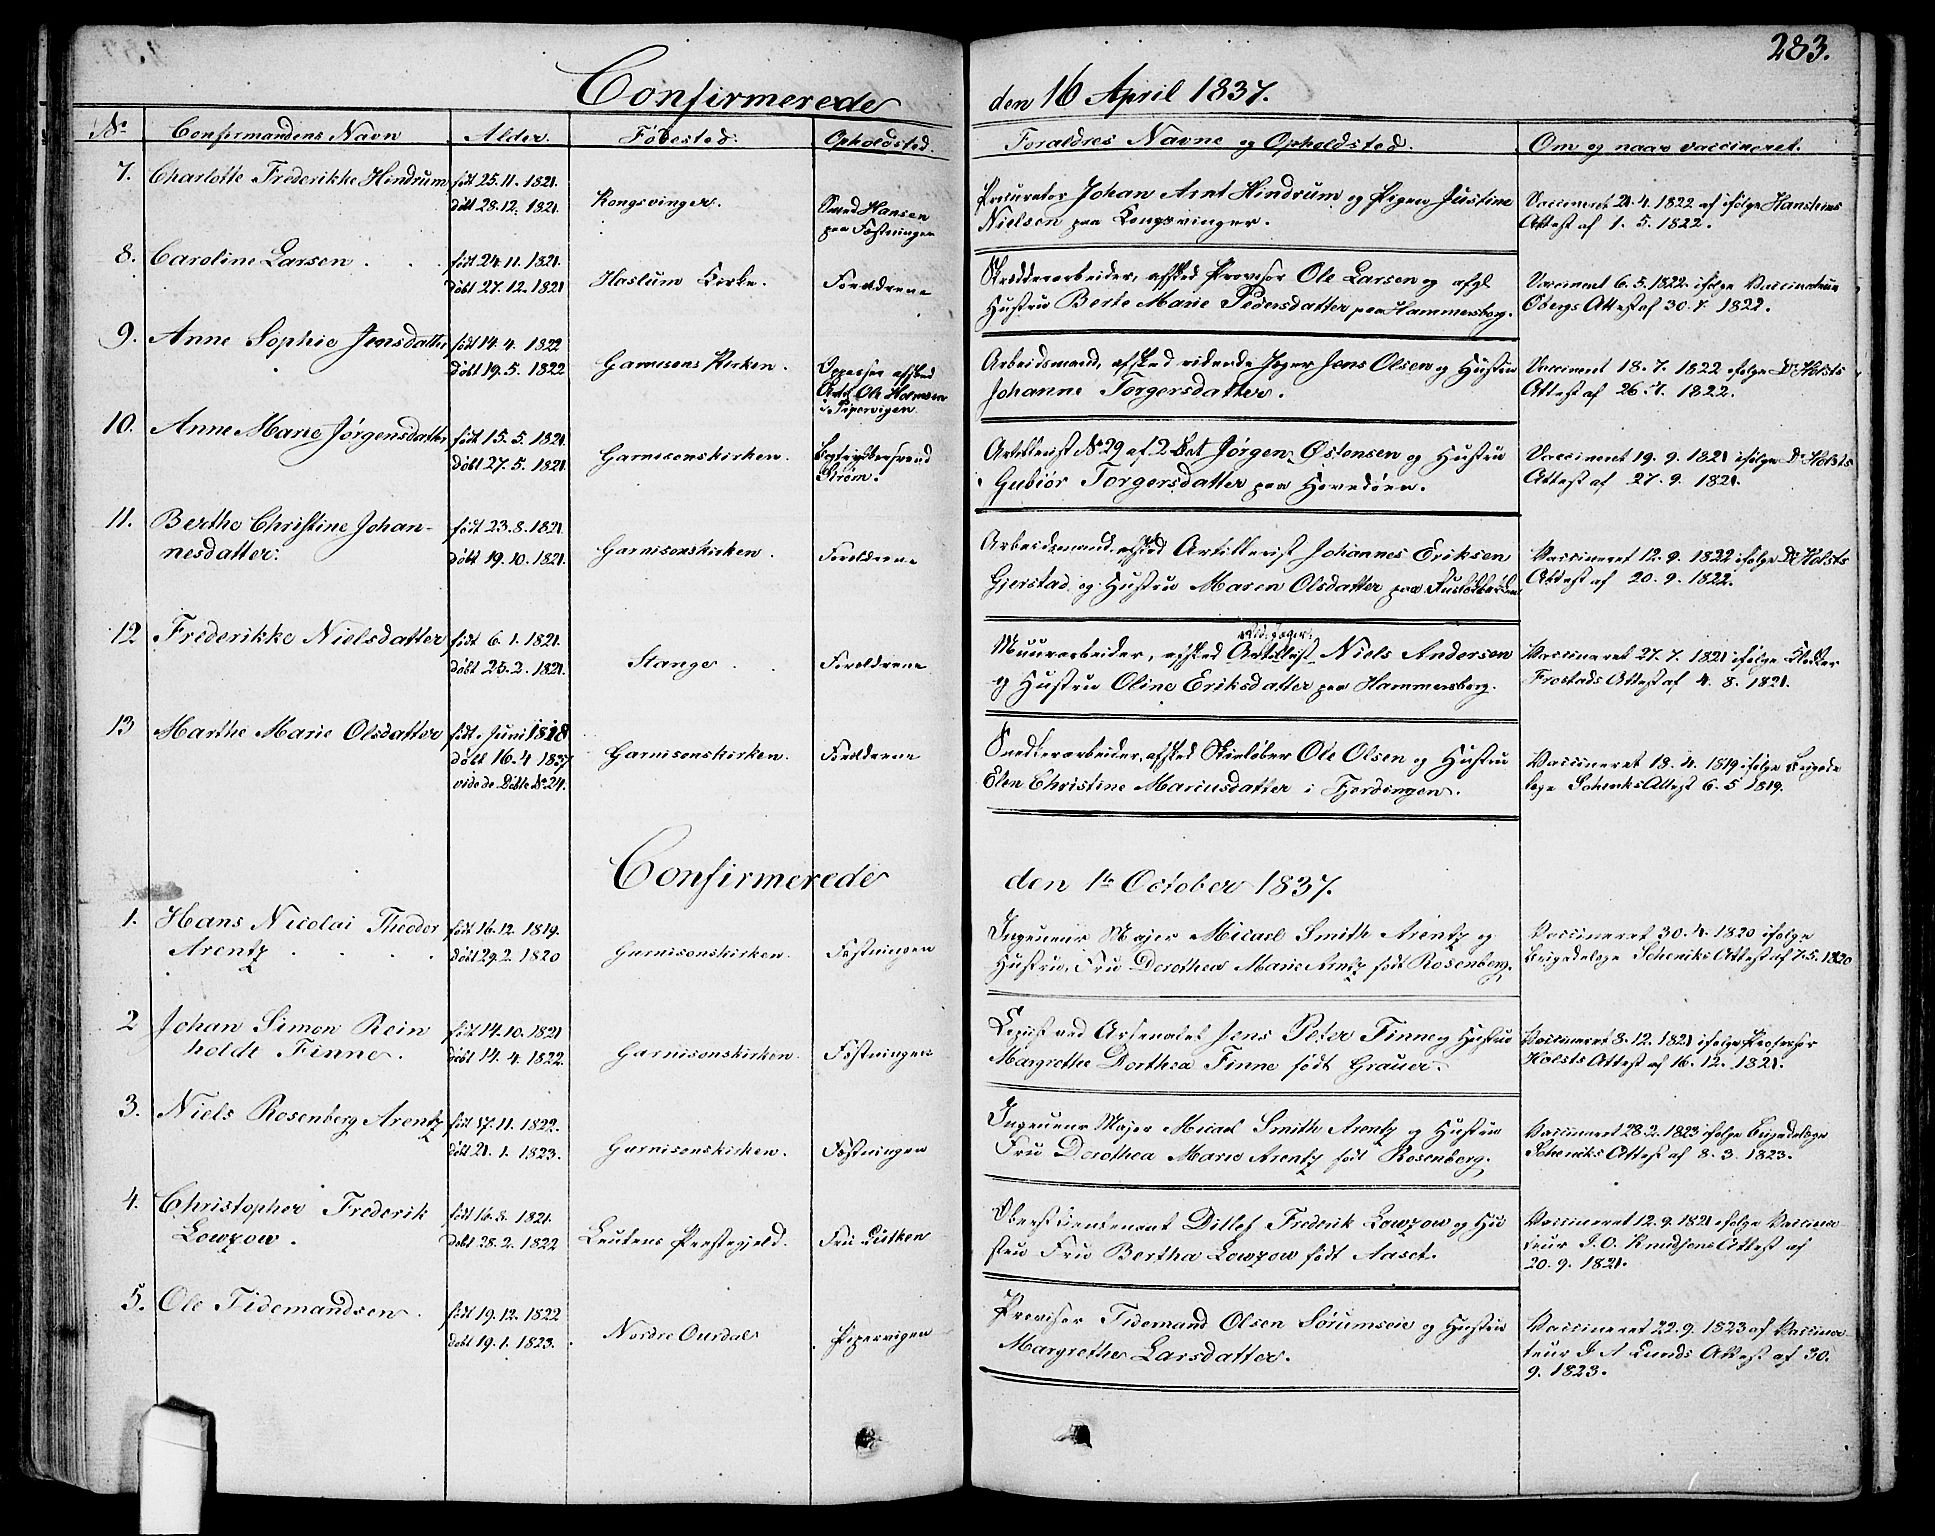 283.
Confirmerede den 16 April 1837.
No Confirmandens Navn Alder. Føbested. Opholdsted. Foraldres Navne og Opholdsted. Om og naar vaccineret.
7. Charlotte Frederikke Hindrum født 25.11.1821.
døbt 28.12.1821. Kongsvinger. Hansen
paa Fæstningen
Procurator Johan Arnt Hindrum og Pigen Justine
Nielsen paa Kongsvinger.
Vaccineret 21.4.1822 ifølge Hansteens
Attest af 1.5.1822.
8. Caroline Larsen . . . født 24.11.1821.
døbt 27.12.1821 Haslum Kirke. Forældrene
afsked Provisor Ole Larsen og
Hustru Berte Marie Pedersdatter paa Hammersborg.
Vaccineret 6.5.1822 ifølge Vaccinateur
Øbergs Attest af 30.7.1822.
9. Anne Sophie Jensdatter født 14.4.1822
døbt 19.5.1822 Garnisons Kirken. afsked
Ole Holmsen
i Pipervigen
Arbeidsmand, afsked ridende Jæger Jens Olsen og Hustru
Johanne Torgersdatter.
Vaccineret 18.7.1822 ifølge Dr Holsts
Attest af 26.7.1822.
10. Anne Marie Jørgensdatter født 15.5.1821.
døbt 27.5.1821. Garnisonskirken.
Strøm.
Artillerist No 29 af 2 Bat Jørgen Østensen og Hustru
Gubiör Torgersdatter paa Hovedøen.
Vaccineret 19.9.1821 ifølge Dr Holsts
Attest af 27.9.1821.
11. Berthe Christine Johan-
nesdatter. født 23.8.1821
døbt 19.10.1821. Garnisonskirken. Forældrene
Arbeidsmand, afsked Artillerist Johannes Eriksen
Gjerstad og Hustru Maren Olsdatter paa
Vaccineret 12.9.1822 ifølge Dr Holsts
Attest af 20.9.1822.
12 Frederikke Nielsdatter født 6.1.1821.
døbt 25.2.1821. Stange . . Forældrene
rid. Jæger
Muurarbeider, afsked Artillerist Niels Andersen
og Hustru Oline Eriksdatter paa Hammersborg.
Vaccineret 27.7.1821 ifølge Klokker
Frostads Attest af 4.8.1821.
13 Marthe Marie Olsdatter født. Juni 1818
døbt 16.4 1837
vide de Døbte No 24. Garnisonskirken. Forældrene
afsked Skieløber Ole Olsen og Hustru
Elen Christine Mariusdatter i Fjerdingen.
Vaccineret 18.4.1819 ifølge Brigade
læge Schenks Attest 6.5 1819.
Confirmerede den 1te October 1837.
1. Hans Nicolai Theodor
Arentz . . . . født 16.12.1819.
døbt 29.2.1820 Garnisonskirken. Fæstningen
Ingenieur Major Micael Smith Arentz og
Hustru, Fru Dorothea Marie Arentz født Rosenberg.
Vaccineret 30.4.1820 ifølge
Brigadelæge Scheniks Attest af 7.5.1820
2 Johan Simon Rein
holdt Finne. født 14.10.1821
døbt 14.4.1822. Garnisonskirken. Fæstningen
Copist ved Arsenalet Jens Peter Finne og Hustru
Margrethe Dorthea Finne født Grauer.
Vaccineret 8.12.1821 ifølge Professor
Holsts Attest af 16.12.1821.
3. Niels Rosenberg Arentz født 17.11.1822.
døbt 21.1.1823. Garnisonskirken. Fæstningen
Ingenieur Major Micael Smith Arentz og Hustru
Fru Dorothea Marie Arentz født Rosenberg.
Vaccineret 28.2.1823 ifølge Brigadelæge
Scheniks Attest af 8.3.1823.
4. Christopher Frederik
Lowzow. født 16.8.1821.
døbt 28.2.1822 Leutens Præstegjeld. Fru Lütken
Oberst Lieutenant Ditlef Frederik Lowzow og Hu
stru Fru Bertha Lowzow født Aaset.
Vaccineret 12.9.1821 ifølge Vaccina
teur J.O. Knudsens Attest af
20.9.1821.
5. Ole Tidemandsen. født 19.12.1822
døbt 19.1.1823. Nordre Ourdal Pipervigen
Provisor Tidemand Olsen Sørumseie og Hustru
Margrethe Larsdatter.
Vaccineret 22.9.1823 af Vaccina-
teur J A Lunds Attest af 30.
9.1823.